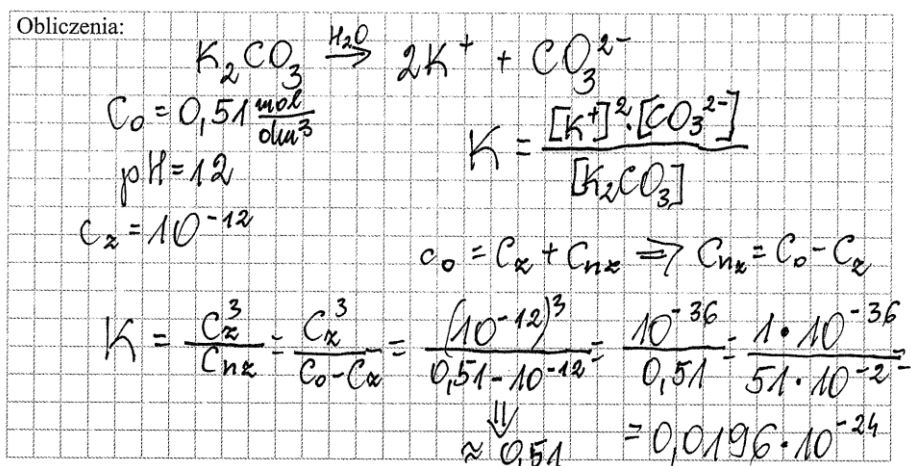 Obliczenia:
K₂CO₃ —H₂O→ 2K⁺ + CO₃²⁻
C₀ = 0,51 mol/dm³
K = [K⁺]²·[CO₃²⁻] / [K₂CO₃]
pH = 12
c_z = 10⁻¹²
c₀ = C_z + C_nz ⇒ C_nz = C₀ - C_z
K = C_z³ / C_nz = C_z³ / (C₀ - C_z) = (10⁻¹²)³ / (0,51 - 10⁻¹²) = 10⁻³⁶ / 0,51 = 1·10⁻³⁶ / 51·10⁻² =
⇓
≈ 0,51 = 0,0196·10⁻²⁴